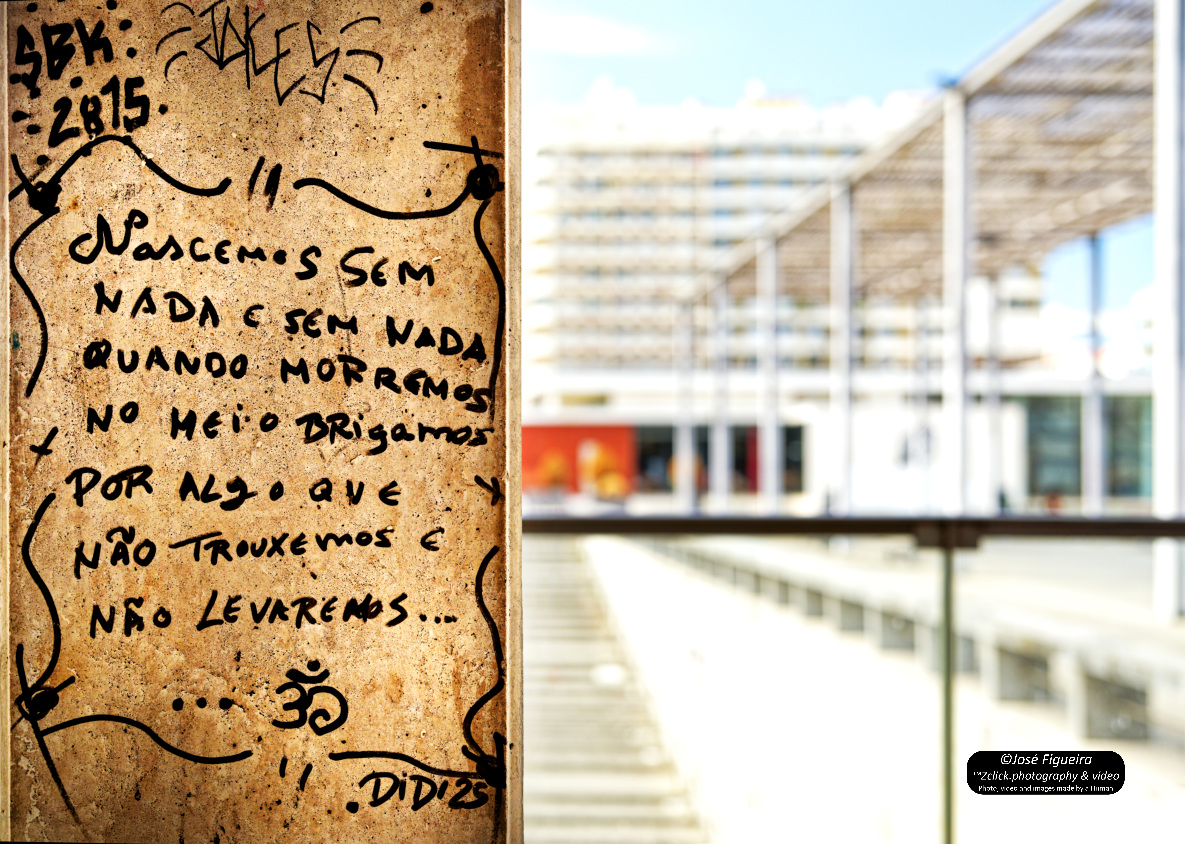 SBK
2815
JOKES
"
Nascemos Sem
NADA E SEM NADA
QUANDO MORREMOS
NO MEIO BRIgamos
POR ALgo QUE
NÃO TROUXEMOS E
NÃO LEVAREMOS...
... ॐ
"
.DiDi25
©José Figueira
™Zclick.photography & video
Photo, video and images made by a Human